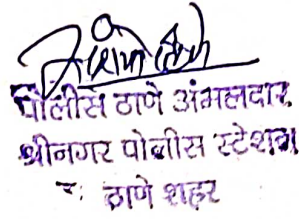 पोलीस ठाणे अंमलदार
श्रीनगर पोलीस स्टेशन
ठाणे शहर